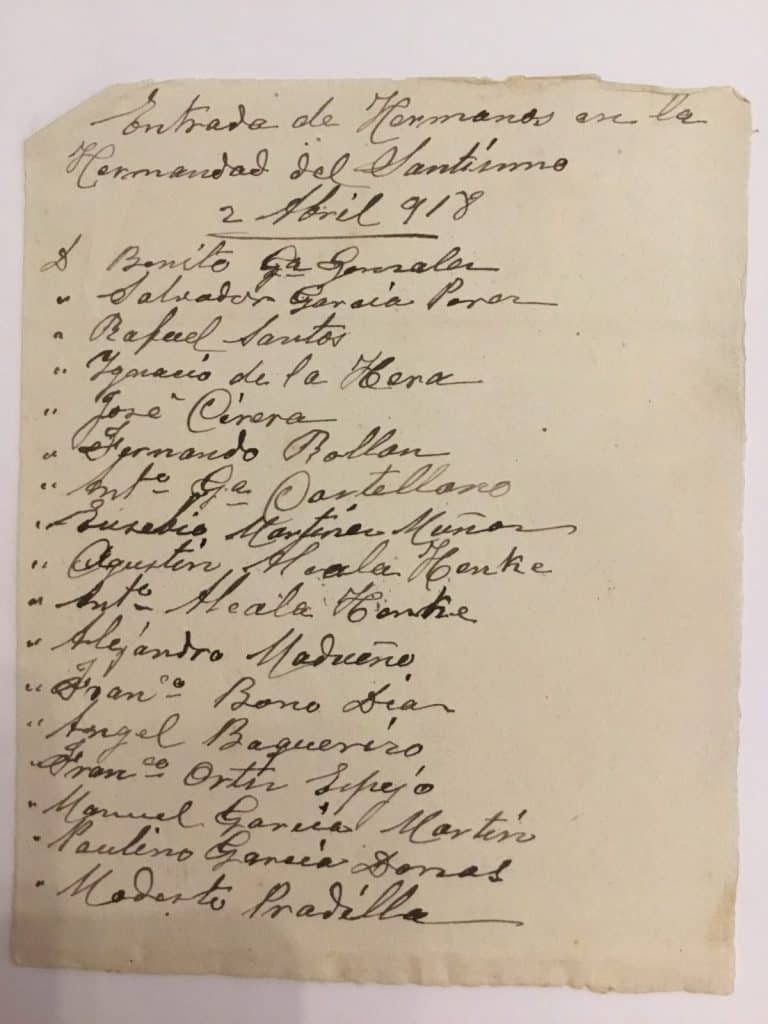 Entrada de Hermanos en la
Hermandad del Santísimo
2 Abril 918
D Benito Ga Gonzalez
" Salvador Garcia Perez
" Rafael Santos
" Ignacio de la Hera
" José Cirera
" Fernando Rollan
" Anto Ga Castellano
" Eusebio Martinez Muñoz
" Agustin Alcala Henke
" Anto Alcala Henke
" Alejandro Madueño
" Franco Bono Diaz
" Angel Baquerizo
" Franco Ortiz Espejo
" Manuel Garcia Martin
" Paulino Garcia Donas
" Modesto Pradilla